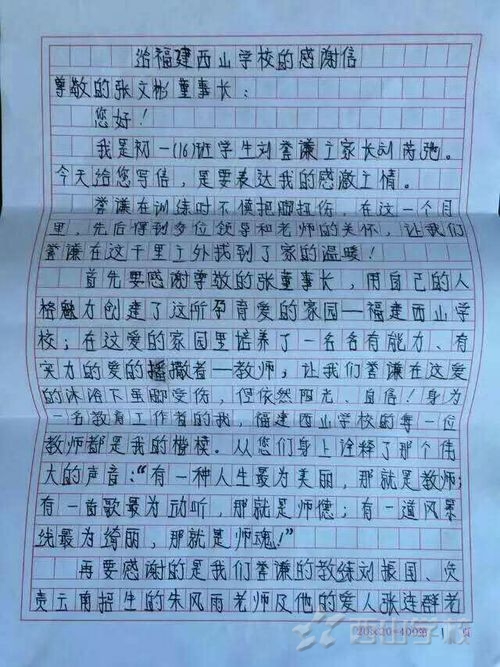 给福建西山学校的感谢信
尊敬的张文彬董事长：
您好！
我是初一(16)班学生刘誉谦之家长刘芮弛。
今天给您写信，是要表达我的感激之情。
誉谦在训练时不慎把脚拉伤，在这一个月
里，先后得到多位领导和老师的关怀，让我们
誉谦在这千里之外找到了家的温暖！
首先要感谢尊敬的张董事长，用自己的人
格魅力创建了这所孕育爱的家园—福建西山学
校；在这爱的家园里培养了一名名有能力、有
实力的爱的播撒者—教师；让我们誉谦在这爱
的沐浴下虽脚受伤，但依然阳光、自信！身为
一名教育工作者的我，福建西山学校的每一位
教师都是我的楷模。从您们身上诠释了那个伟
大的声音："有一种人生最为美丽，那就是教师；
有一首歌最为动听，那就是师德；有一道风景
线最为绮丽，那就是师魂！"
再要感谢的是我们誉谦的教练刘振国、负
责云南招生的朱风雨老师及他的爱人张连群老
(20×20=400) 第 1 页
西山学校